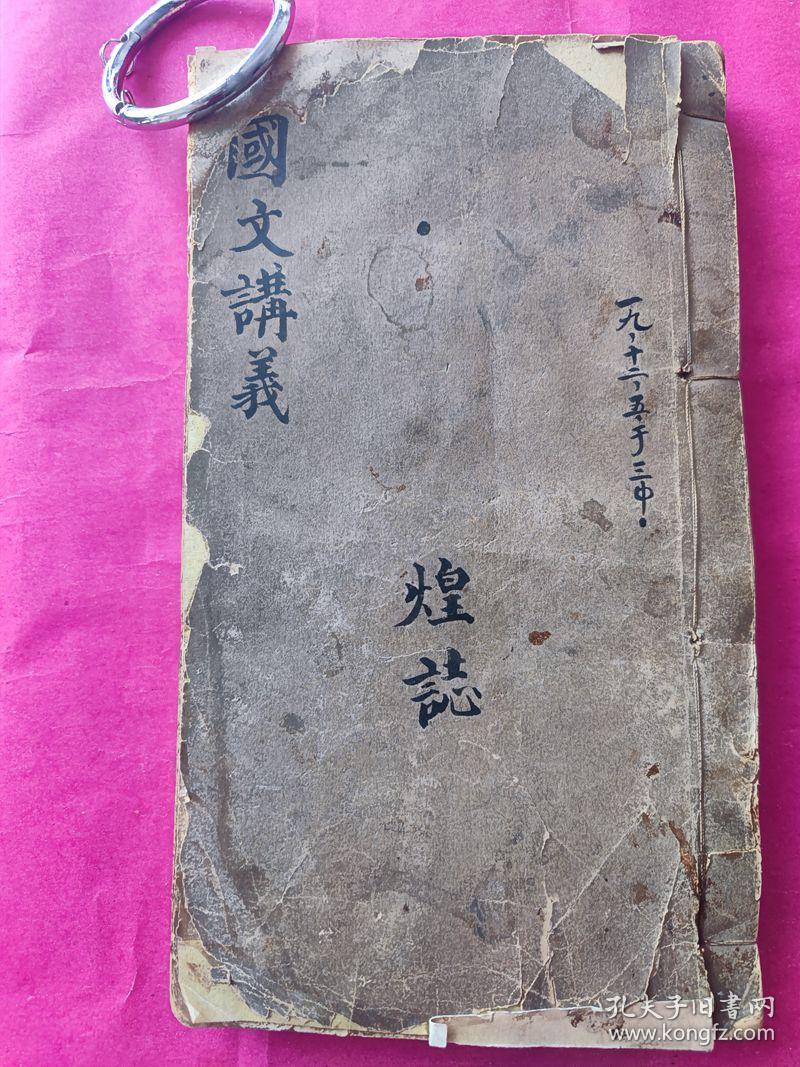 國文講義
一九，十二，五，于三中．
煌誌
孔夫子旧書网
www.kongfz.com